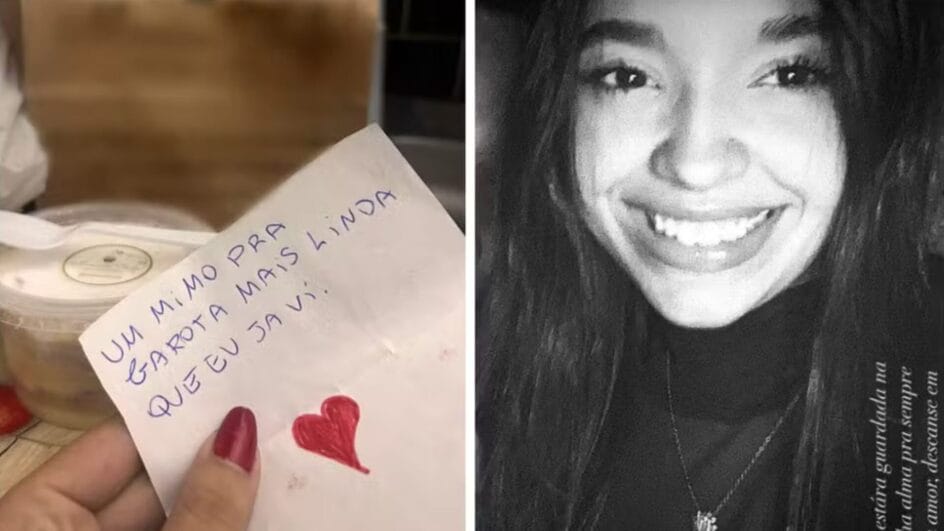 UM MIMO PRA
GAROTA MAIS LINDA
QUE EU JA VI.
stára guardada na
a alma pra sempre
amor, descanse em